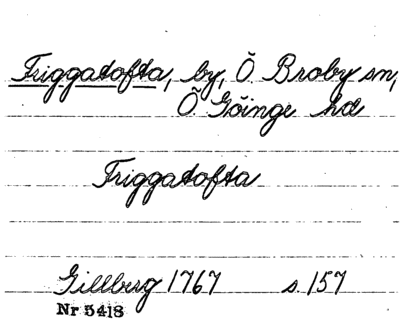 Friggatofta, by, Ö Broby sn,
Ö. Göinge hd
Friggatofta
Gillberg 1767 s. 157
Nr 5418